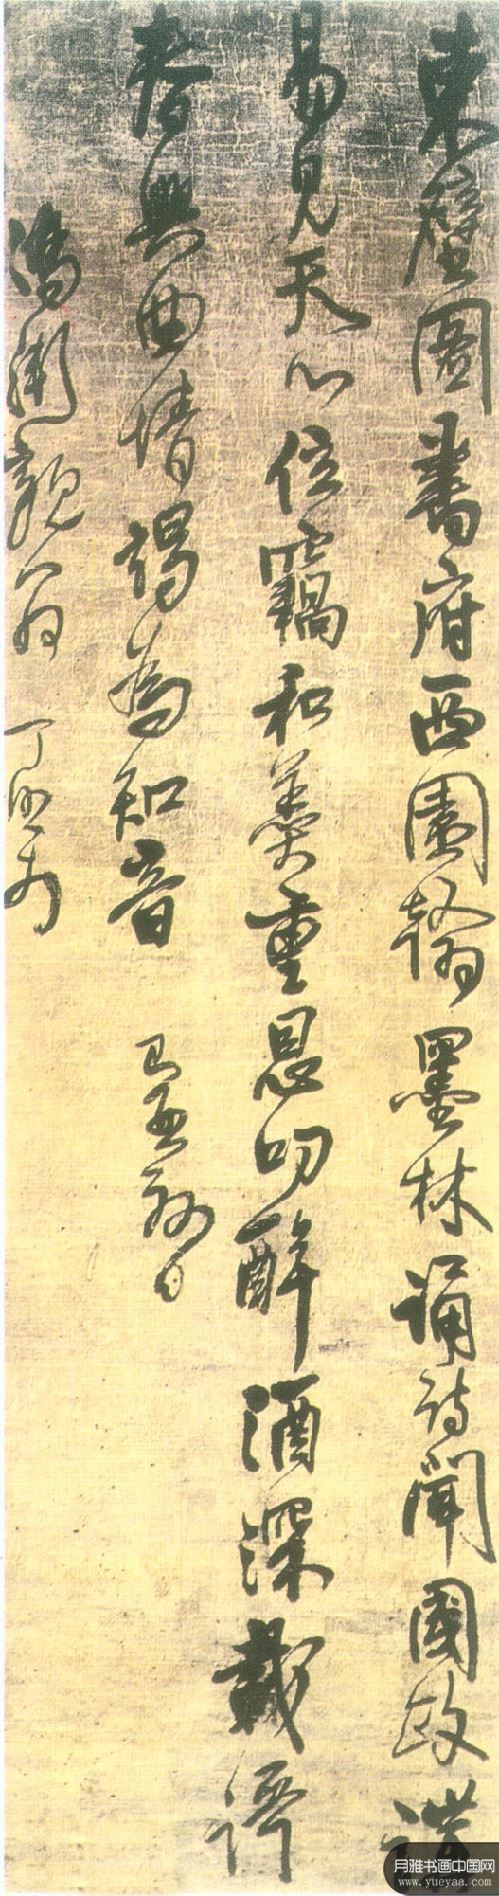 東壁圖書府西園翰墨林誦詩聞國政講
易見天心位竊和羹重恩叨醉酒深載
春興曲情竭為知音
親翁
月雅书画中国网
www.yueyaa.com